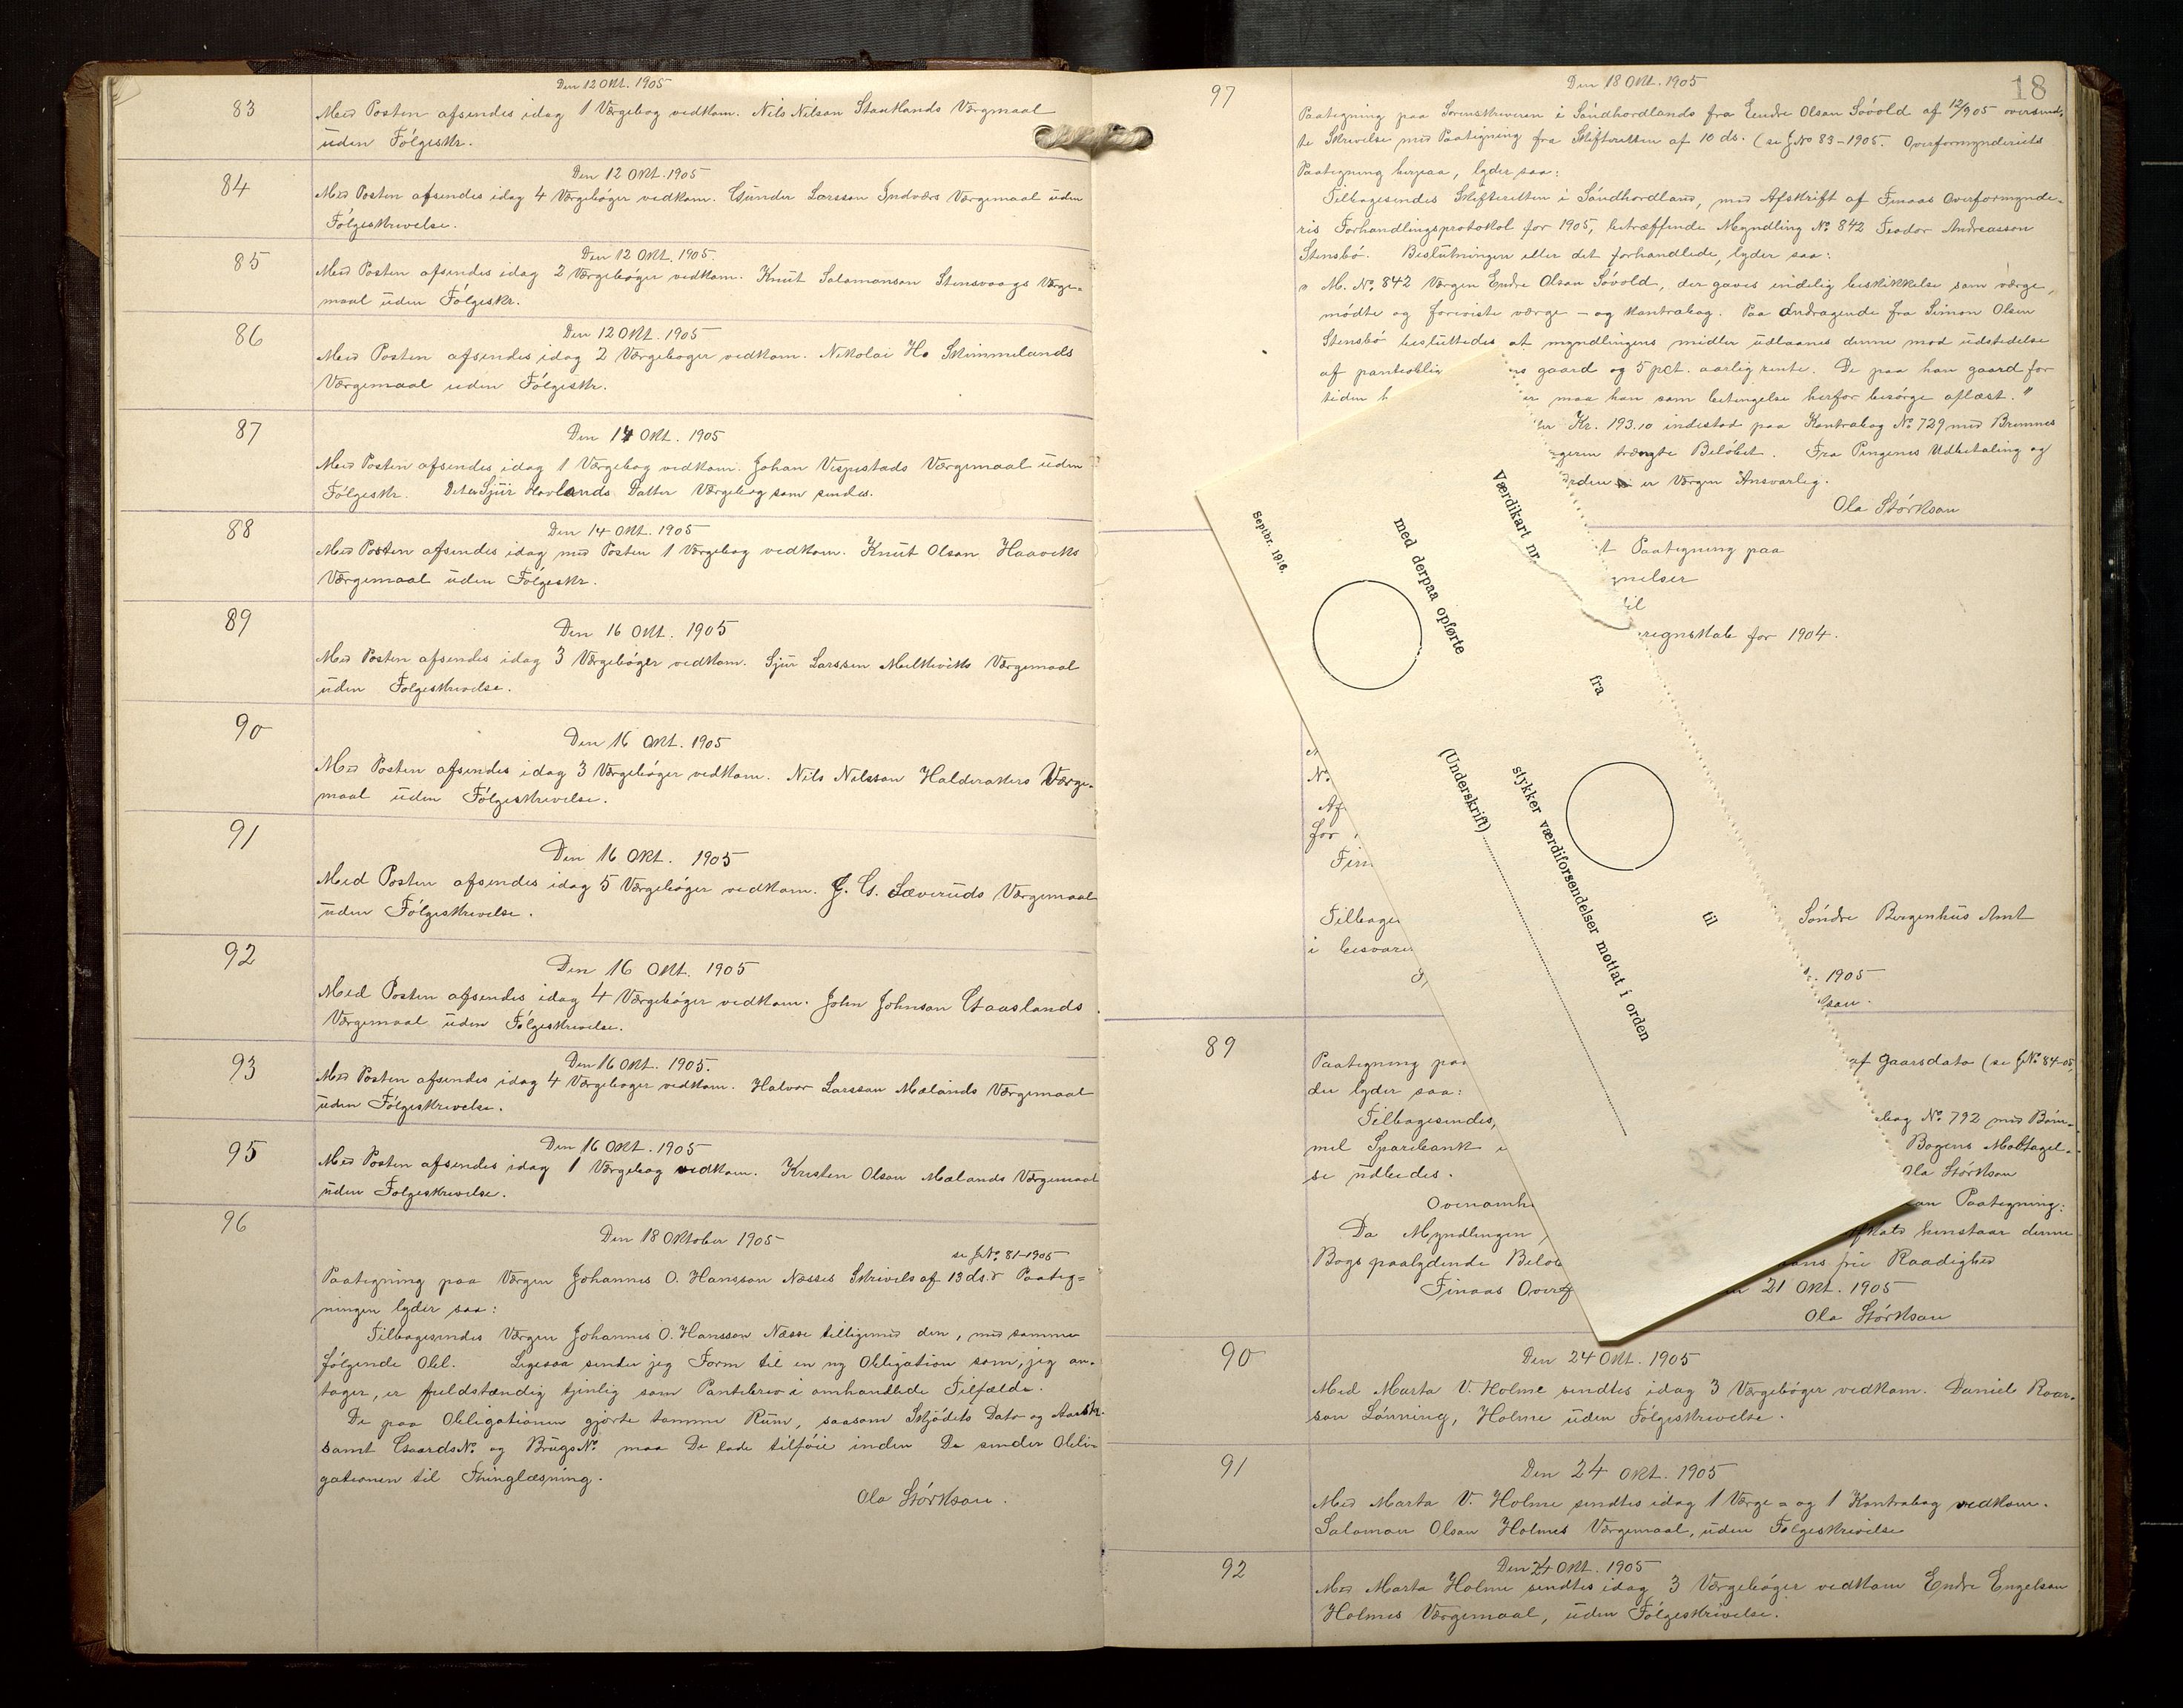 Den 12 Okt. 1905
83
Med Posten afsendes idag 1 Værgebog vedkom. Nils Nilsson Stautlands Værgmaal
uden Følgeskr.
Den 12 Okt. 1905
84
Med Posten afsendes idag 4 Værgebøger vedkom. Gunder Larsson Indværs Værgemaal uden
Følgeskrivelse.
Den 12 Okt. 1905.
85
Med Posten afsendes idag 2 Værgebøger vedkom. Knut Salamonson Stensvaags Værge-
maal uden Følgeskr.
86
Den 12 Okt. 1905
Med Posten afsendes idag 2 Værgebøger vedkom. Nikolai H. Skimmelands
Værgemaal uden Følgeskr.
87
Den 14 Okt. 1905
Med Posten afsendes idag 1 Værgebog vedkom. Johan Vespestads Værgemaal uden
Følgeskr. Det er Sjur Hovlands Datter Værgebog som sendes.
88
Den 14 Okt. 1905
Med Posten afsendes idag med Posten 1 Værgebog vedkom. Knut Olson Haaviks
Værgemaal uden Følgeskr.
89
Den 16 Okt. 1905
Med Posten afsendes idag 3 Værgebøger vedkom. Sjur Larssen Melkeviks Værgemaal
uden Følgeskrivelse.
90
Den 16 Okt. 1905
Med Posten afsendes idag 3 Værgebøger vedkom. Nils Nelsson Halderakers Værge-
maal uden Følgeskrivelse.
91
Den 16 Okt. 1905
Med Posten afsendes idag 5 Værgebøger vedkom. J. G. Sæveruds Værgemaal
uden Følgeskrivelse.
92
Den 16 Okt. 1905
Med Posten afsendes idag 4 Værgebøger vedkom. John Johnson Gaaslands
Værgemaal uden Følgeskrivelse.
93
Den 16 Okt. 1905.
Med Posten afsendes idag 4 Værgebøger vedkom. Halvor Larsson Mælands Værgemaal
uden Følgeskrivelse.
95
Den 16 Okt. 1905
Med Posten afsendes idag 1 Værgebog vedkom. Kristen Olson Mælands Værgemaal
uden Følgeskrivelse.
96
Den 18 Oktober 1905
se J.No. 81-1905
Paategning paa Værgen Johannes O. Hansson Næsses Skrivels af 13 ds. Paateg=
ningen lyder saa:
Tilbagesendes Værgen Johannes O. Hansson Næsse tilligemed den, med samme
følgende Obl. Ligesaa sender jeg Form til en ny Obligation som, jeg an-
tager, er fuldstændig tjenlig som Pantebrev i omhandlede Tilfælde.
De paa Obligationen gjorte tomme Rum, saasom Skjødets Dato og
samt Gaards No. og Brugs No. maa De lade tilføie inden De sender Obli-
gationen til Thinglæsning.
Ola Størkson.
18
97
Den 18 Okt. 1905
Paategning paa Sorenskriveren i Søndhordlands fra Endre Olson Søvold af 12/9 05 oversend-
te Skrivelse med Paategning fra Skifteretten af 10 ds. (se J No 83-1905. Overformynderiets
Paategning herpaa, lyder saa:
Tilbagesendes Skifteretten i Søndhordland, med Afskrift af Finaas Overformynde-
ris Forhandlingsprotokol for 1905, betræffende Myndling No. 842 Teodor Andreasson
Stensbø. Beslutningen eller det forhandlede, lyder saa:
" M. No. 842 Værgen Endre Olson Søvold, der gaves endelig beskikkelse som værge,
mødte og foreviste værge- og Kontrabog. Paa andragende fra Simon Olsen
Stensbø besluttedes at myndlingens midler udlaanes denne mod udstedelse
af panteoblig ns gaard og 5 pct. aarlig rente. De paa han gaard for
tiden h er maa han som betingelse herfor besørge aflæst."
er Kr. 193.10 indestod paa Kontrabog No. 729 med Bremnes
gern trængte Beløbet. Fra Pengenes Udbetaling og
orden er Værgen Ansvarlig.
Ola Størkson
t Paategning paa
nelser
til
regnskab for 1904.
Septbr. 1916.
med derpaa opførte
Værdikart nr.
fra
stykker værdiforsendelser mottat i orden
(Underskrift)
til
N.
Af
for
Fin
Tilbage Søndre Bergenhus Amt
i besvare
1905
lson.
89
Paategning paa af Gaarsdato (se J.No. 84-05
der lyder saa:
Tilbagesendes, bog No. 792 med Bøm-
mel Sparebank Bogens Modtagel-
se udbedes. Ola Størkson
Ovennævnte an Paategning:
Da Myndlingen henstaar denne
Bogs paalydende Belø ans frie Raadighed
Finaas Overf 21 Okt. 1905
Ola Størkson
90
Den 24 Okt. 1905
Med Marta V. Holme sendtes idag 3 Værgebøger vedkom. Daniel Roar-
son Lønning, Holme uden Følgeskrivelse.
91
Den 24 Okt. 1905
Med Marta V. Holme sendtes idag 1 Værge= og 1 Kontrabog vedkom.
Salamon Olson Holmes Værgemaal, uden Følgeskrivelse
92
Den 24 Okt. 1905
Med Marta Holme sendtes idag 3 Værgebøger vedkom Endre Engelson
Holmes Værgemaal, uden Følgeskrivelse.